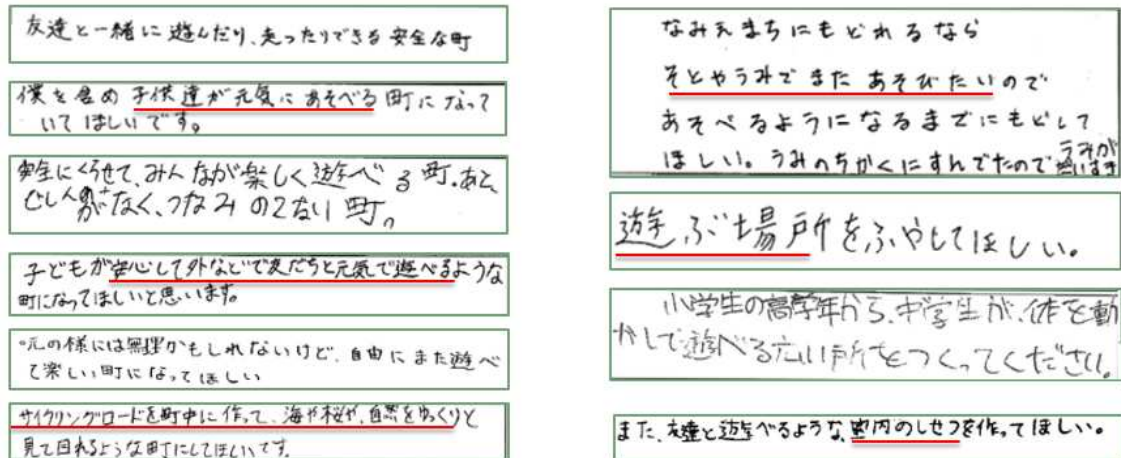 友達と一緒に遊んだり、走ったりできる安全な町
僕を含め子供達が元気にあそべる町になって
いてほしいです。
安全にくらせて、みんなが楽しく遊べる町。あと、
じしんがなく、つなみのこない町。
子どもが安心して外などで友だちと元気で遊べるような
町になってほしいと思います。
・元の様には無理かもしれないけど、自由にまた遊べ
て楽しい町になってほしい
サイクリングロードを町中に作って、海や桜や、自然をゆっくりと
見て回れるような町にしてほしいです。
なみえまちにもどれるなら
そとやうみでまたあそびたいので
あそべるようになるまでにもどして
ほしい。うみのちかくにすんでたのでうみが
遊ぶ場所をふやしてほしい。
小学生の高学年から、中学生が、体を動
かして遊べる広い所をつくってください。
また、友達と遊べるような町内のしせつを作ってほしい。